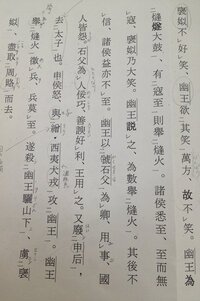 褒姒不好笑、幽王欲其笑萬方、故不笑。幽王為
㷭燧大鼓、有寇至則擧㷭火。諸侯悉至、至而無
寇。褒姒乃大笑。幽王說之、為數擧㷭火。其後不
信、諸侯益亦不至。幽王以虢石父為卿、用事、國
人皆怨。石父為人佞巧、善諛好利、王用之。又廢申后、
去太子也。申侯怒、與繒・西夷犬戎攻幽王。幽王
擧㷭火徵兵、兵莫至。遂殺幽王驪山下、虜褒
姒、盡取周賂而去。